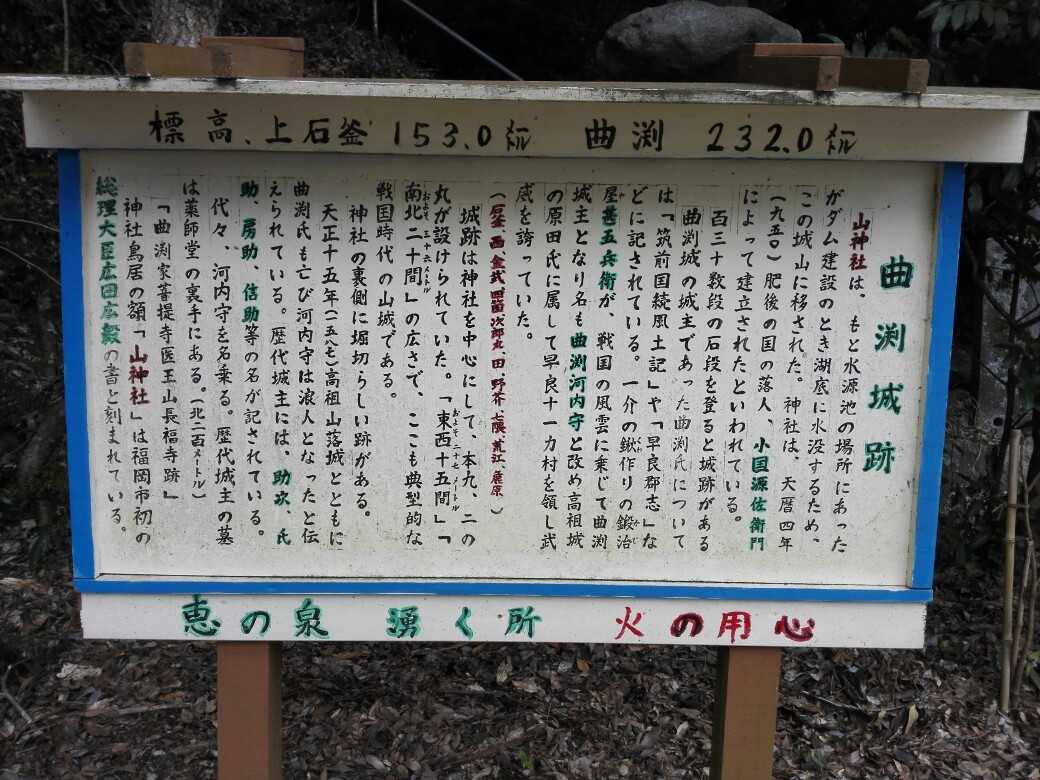 標高、上石釜 153.0㍍ 曲渕 232.0㍍
曲渕城跡
山神社は、もと水源池の場所にあった
がダム建設のとき湖底に水没するため、
この城山に移された。神社は、天暦四年
(九五〇)肥後の国の落人、小国源佐衛門
によって建立されたといわれている。
百三十数段の石段を登ると城跡がある
曲渕城の城主であった曲渕氏について
は「筑前国続風土記」や「早良郡志」な
どに記されている。一介の鍬作りの鍛治
屋甚五兵衛が、戦国の風雲に乗じて曲渕
城主となり名も曲渕河内守と改め高祖城
の原田氏に属して早良十一カ村を領し武
威を誇っていた。
西、金武、次郎丸、田、野芥、上隈、荒江、庭原)
城跡は神社を中心にして、本丸、二の
丸が設けられていた。「東西十五間」「
およそ二十七メートル
南北二十間」の広さで、ここも典型的な
およそ三十六メートル
戦国時代の山城である。
神社の裏側に堀切らしい跡がある。
天正十五年(一五八七)高祖山落城とともに
曲渕氏も亡び河内守は浪人となったと伝
えられている。歴代城主には、助次、氏
助、房助、信助等の名が記されている。
代々、河内守を名乗る。歴代城主の墓
は薬師堂の裏手にある。(北二百メートル)
「曲渕家菩提寺医王山長福寺跡」
神社鳥居の額「山神社」は福岡市初の
総理大臣広田広毅の書と刻まれている。
恵の泉 湧く所 火の用心